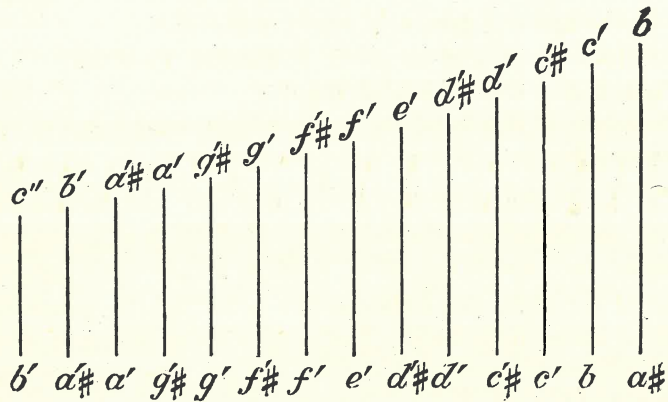 c″ b′ a′# a′ g′# g′ f′# f′ e′ d′# d′ c′# c′ b
b′ a′# a′ g′# g′ f′# f′ e′ d′# d′ c′# c′ b a#